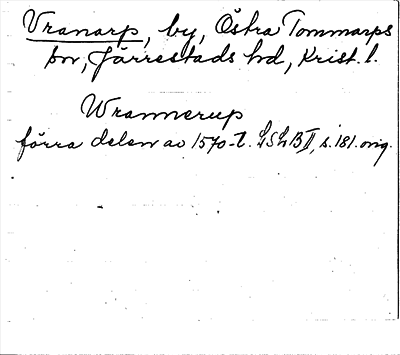 Vranarp, by, Östra Tommarps
sn, Järrestads hd, Krist. l.
Wrannerup
förra delen av 1570-t. LSLB II, s. 181. orig.